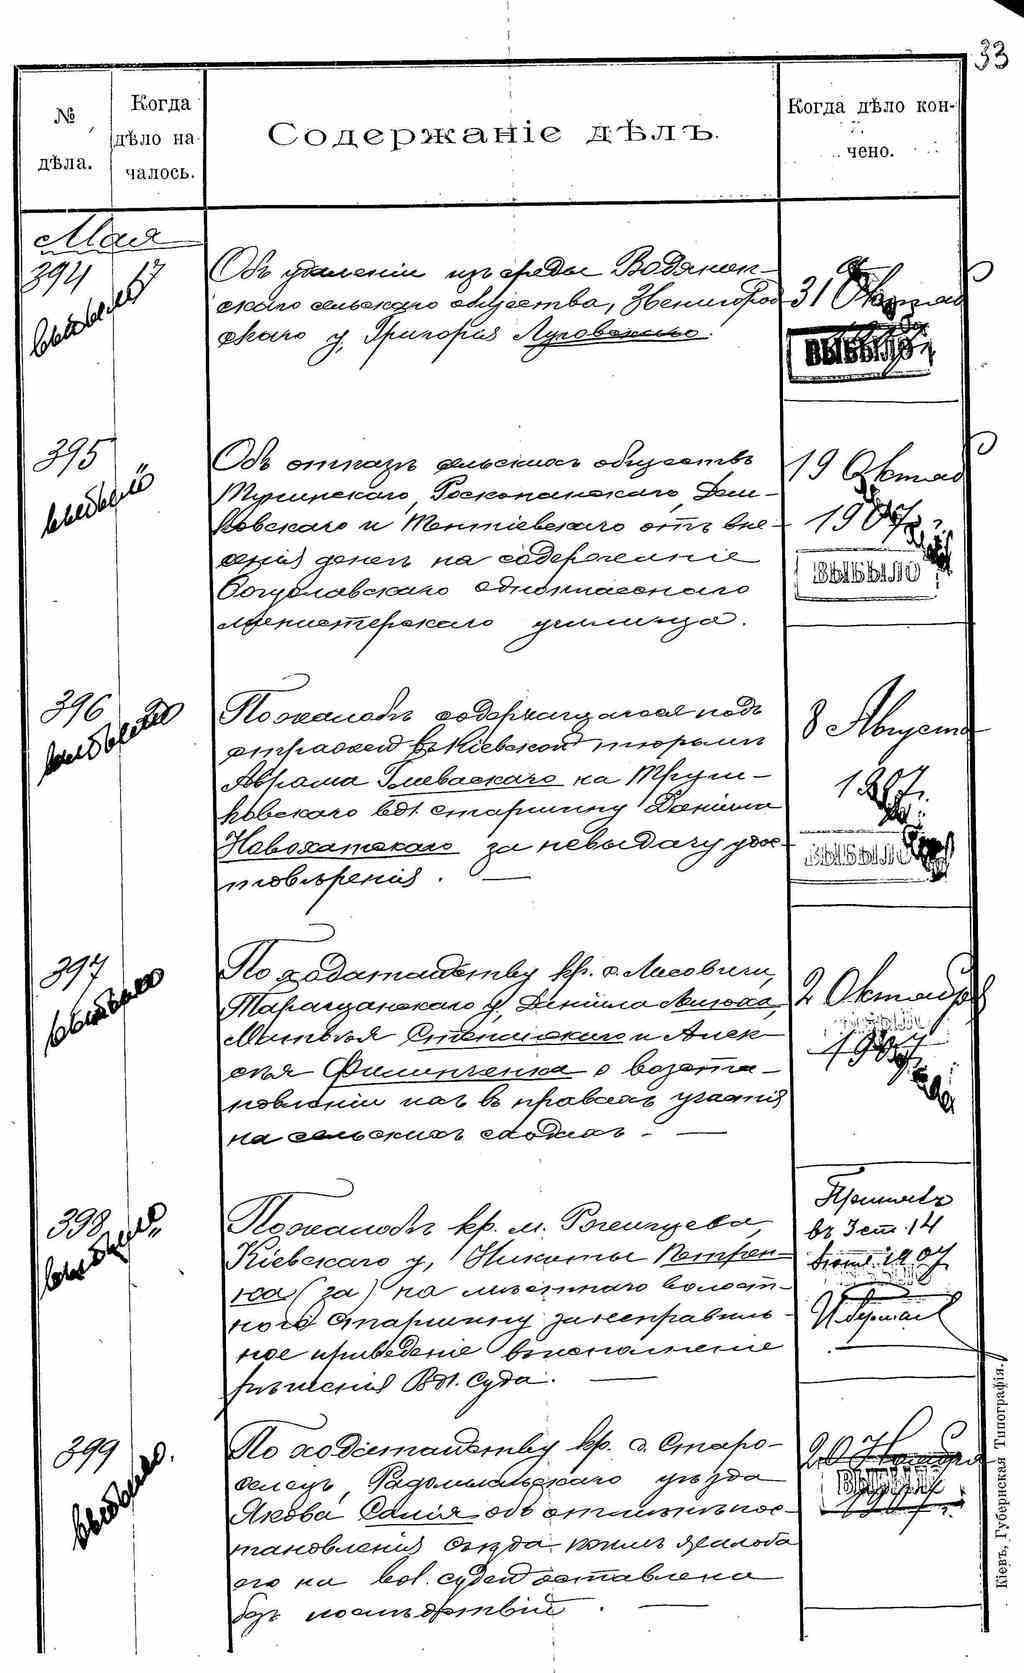 33
№ дѣла.
Когда дѣло началось.
Содержаніе дѣлъ.
Когда дѣло кончено.
Мая
394 17
выбыло
Объ удаленіи изъ среды Водянон-
скаго сельскаго общества, Звенигород
скаго у, Григорія Луговскаго.
31 Октяб
ВЫБЫЛО
395 "
выбыло
Объ отказѣ сельскихъ обществъ
Тунинскаго, Росконанскаго,
ковскаго и отъ вне-
сенія денег на содержаніе
Богуславскаго однокласснаго
министерскаго училища.
19 Октяб
1907 г.
ВЫБЫЛО
396
выбыло
По жалобѣ содержащагося подъ
стражей въ Кіевской тюрьмѣ
Аврама Глеваскаго на Труш-
ковскаго вол. старшину Даніила
Новохатскаго за невыдачу удос-
товѣренія. —
8 Августа
1907 г.
ВЫБЫЛО
397
выбыло
По ходатайству кр. с. Лисовичи,
Таращанскаго у, Даніила
и Алек-
сѣя Филипченка о возста-
новленіи ихъ въ правахъ участія
на сельскихъ сходахъ. —
2 Октября
1907
398 "
выбыло
По жалобѣ кр. м. Рогенцева,
Кіевскаго у, Никиты Петрен-
ка (за) на мѣстнаго волост-
ного старшину за неправиль-
ное приведеніе въ исполненіе
рѣшенія Вол. Суда. —
въ 3 ст. 14
1907
399
выбыло.
По ходатайству кр. с. Старо-
селецъ, Радомысльскаго уѣзда
Якова Салія объ отмѣнѣ пос-
тановленія съѣзда коимъ жалоба
его на вол. судей оставлена
безъ послѣдствій. —
20 Ноября
1907 г.
ВЫБЫЛО
Кіевъ, Губернская Типографія.